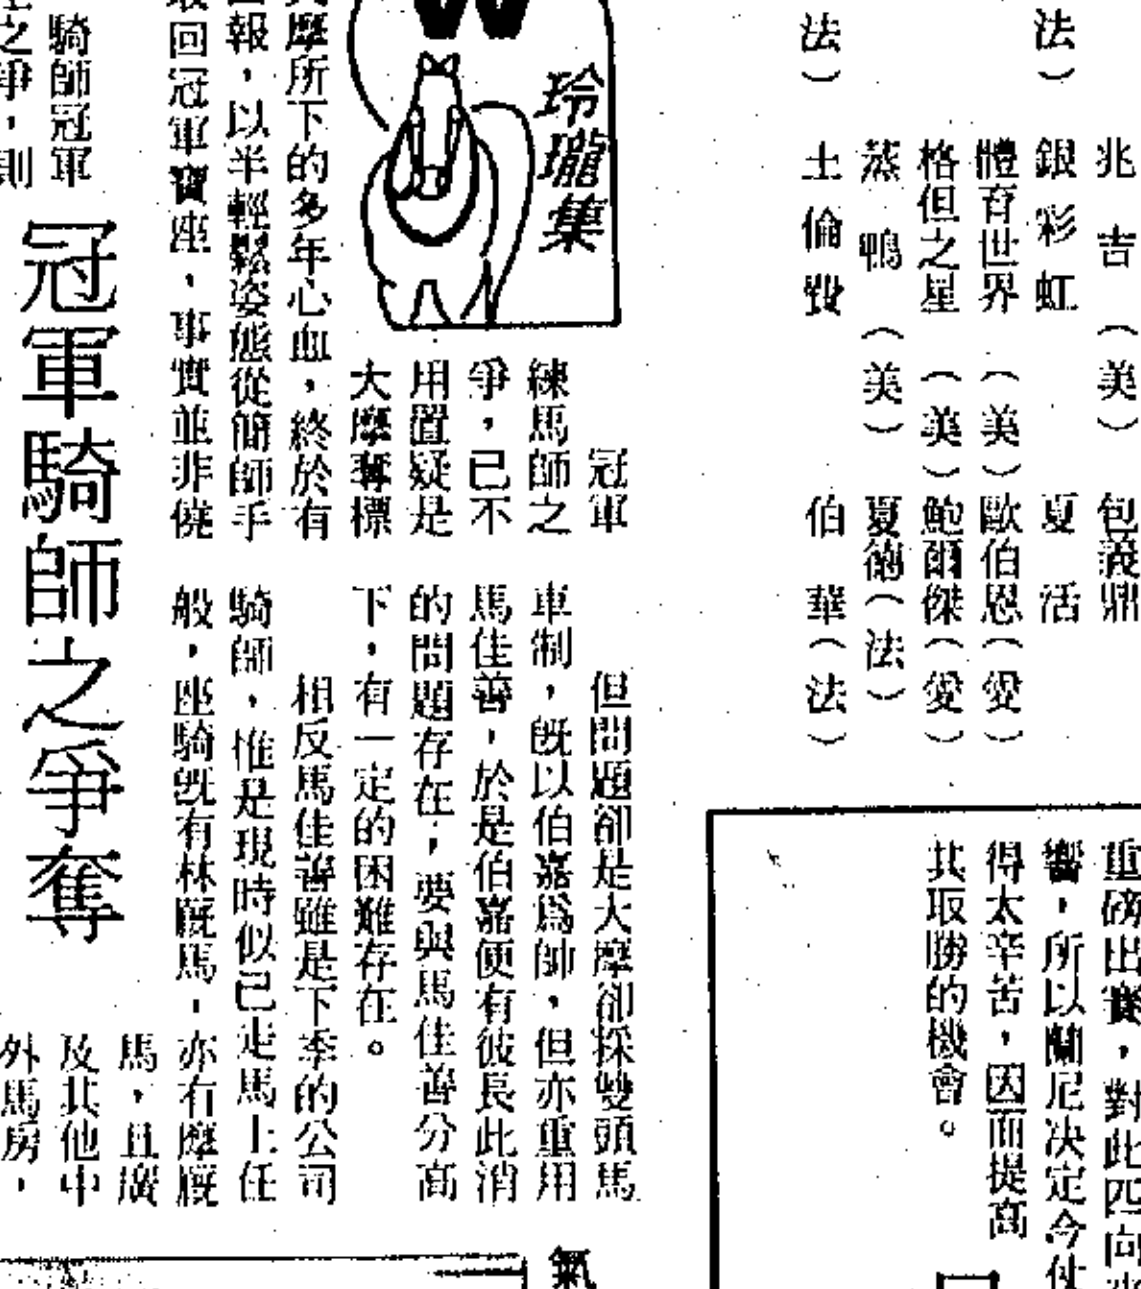 兆吉（美）包義鼎
法）銀彩虹 夏活
體育世界（美）歐伯恩（愛）
格但之星（美）鮑爾傑（愛）
蒸鴨（美）夏德（法）
法）土倫毅 伯華（法）
重磅出賽，對此四向
響，所以蘭尼決定今仗
得太辛苦，因而提高
其取勝的機會。
W
玲瓏集
冠軍騎師之爭奪
冠軍
練馬師之
爭，已不
用置疑是
大摩奪標
摩所下的多年心血，終於有
報，以半輕鬆姿態從簡師手
回冠軍寶座，事實並非僥
騎師冠軍
之爭，則
但問題卻是大摩卻採雙頭馬
車制，既以伯嘉爲帥，但亦重用
馬佳善，於是伯嘉便有彼長此消
的問題存在，要與馬佳善分高
下，有一定的困難存在。
相反馬佳善雖是下季的公司
騎師，惟是現時似已走馬上任
般，座騎既有林廐馬，亦有摩廐
馬，且廣
及其他中
外馬房，
氣